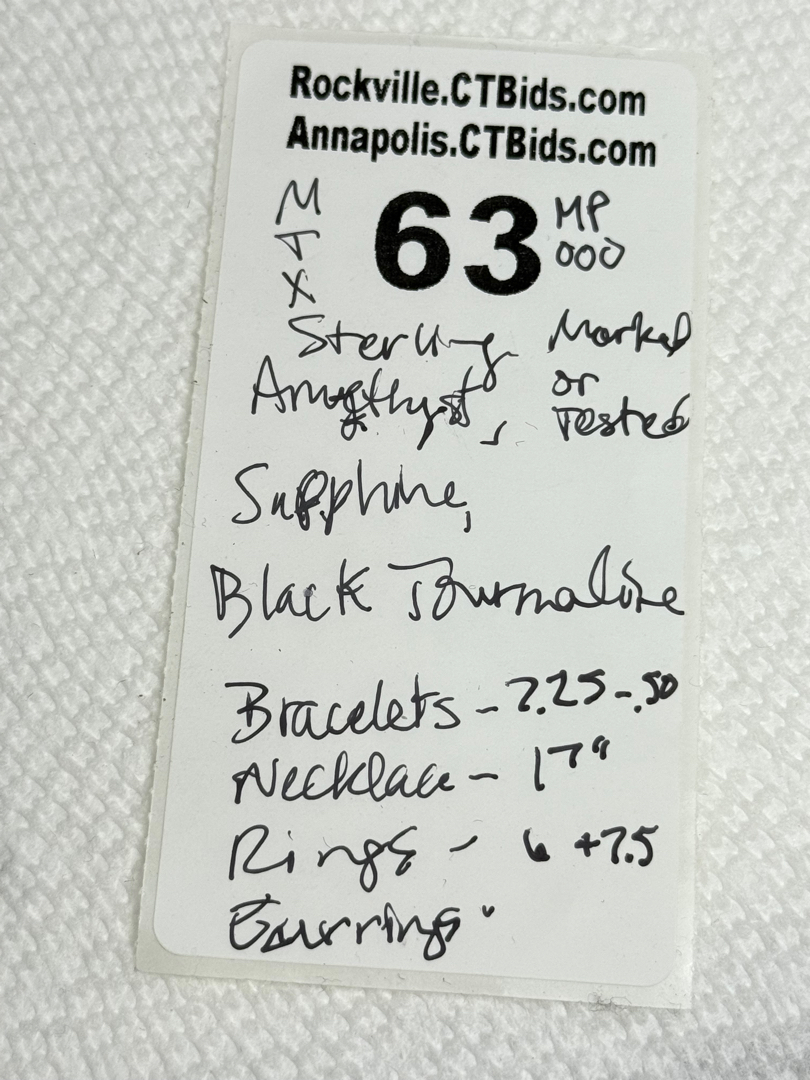 Rockville.CTBids.com
Annapolis.CTBids.com
MTX 63 MP 000
Sterling Marked
Amethyst, or Tested
Sapphire,
Black Tourmaline
Bracelets - 7.25 - .50
Necklace - 17"
Rings - 6 + 7.5
Earrings